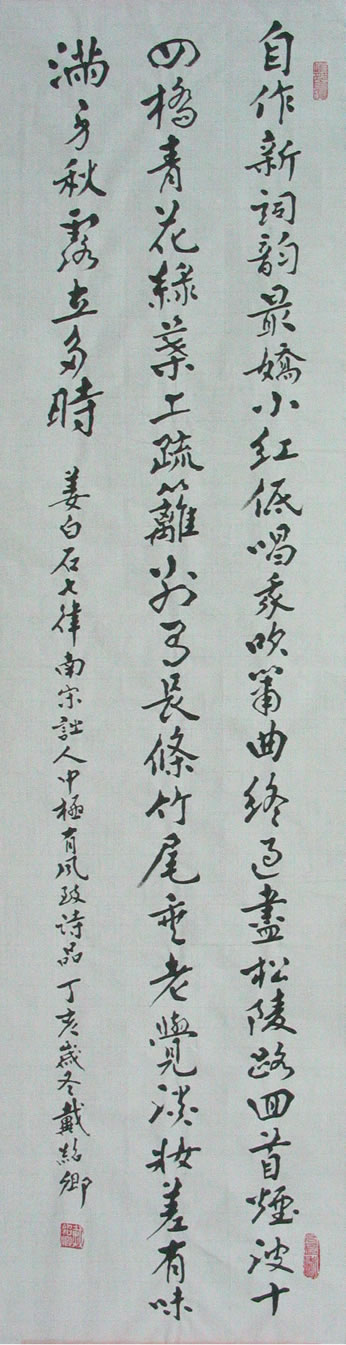 自作新詞韵最嬌小红低唱我吹簫曲終过盡松陵路回首煙波十
四橋青花緑葉上疏籬别有長條竹尾垂老覺淡妝差有味
满身秋露立多時
姜白石七律南宋詩人中極有风致诗品丁亥歲冬戴紹卿